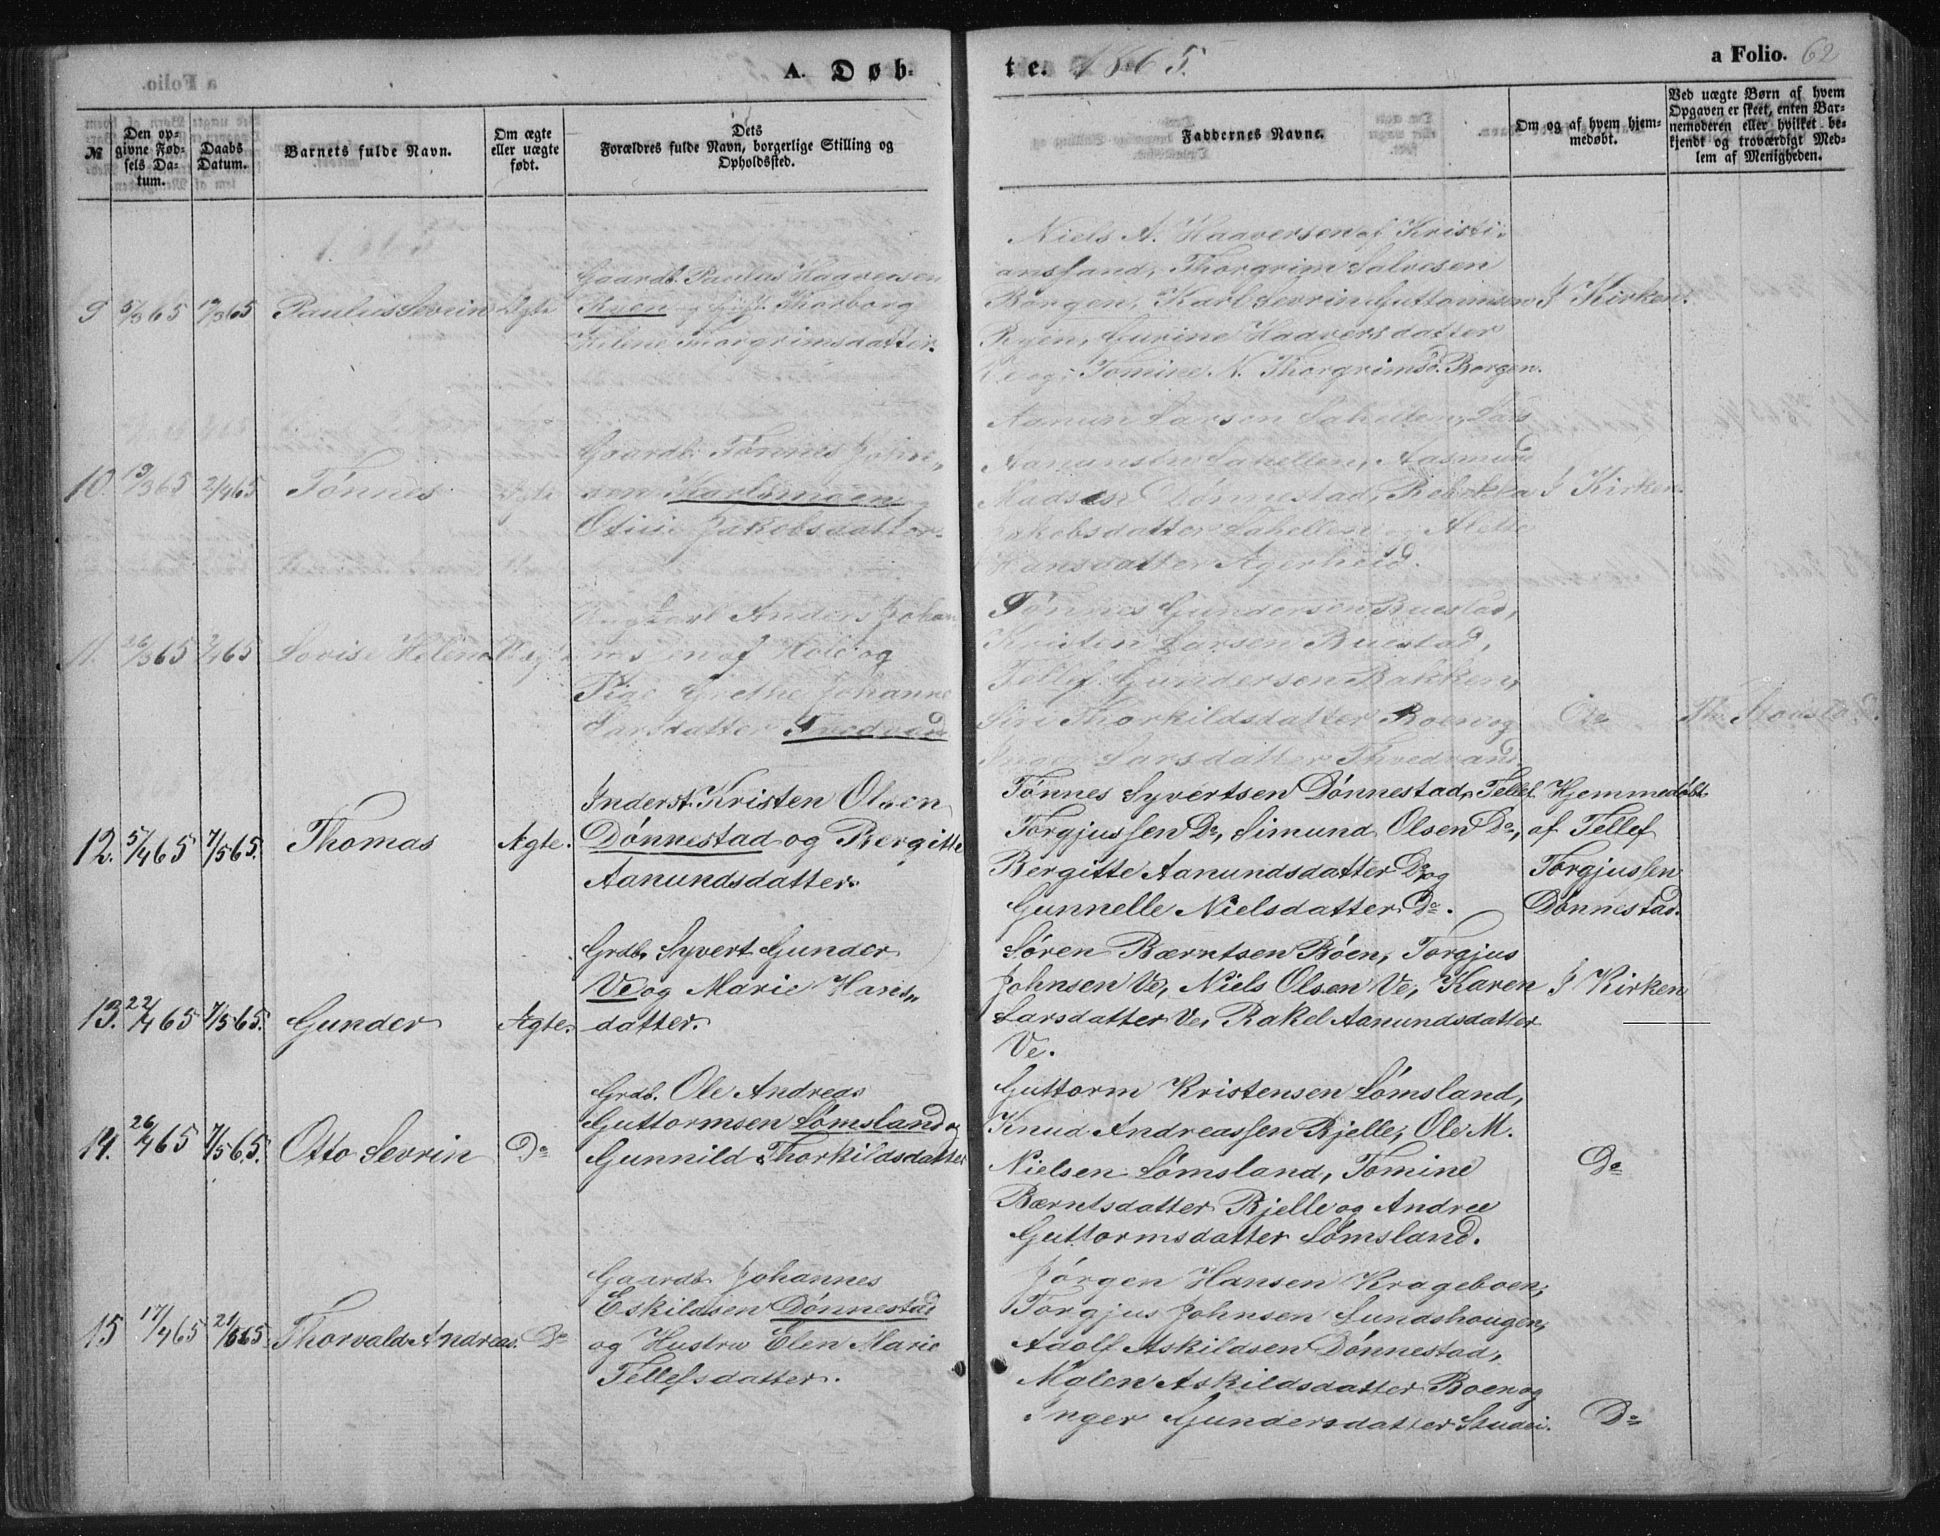 a Folio.
A. Døb-
te. 1865.
a Folio. 62
№
Den op-
givne Fød-
sels Da-
tum.
Daabs
Datum.
Barnets fulde Navn.
Om ægte
eller uægte
født.
Dets
Forældres fulde Navn, borgerlige Stilling og
Opholdssted.
Faddernes Navne.
Om og af hvem hjem-
medøbt.
Ved uægte Børn af hvem
Opgaven er skeet, enten Bar-
nemoderen eller hvilket be-
kjendt og troværdigt Med-
lem af Menigheden.
9 5/3 65 17/3 65 Paulus Sevrin Ægte
Gaardb. Paulus Haaversen
Ryen og Thorborg
Helene Thorgrimsdatter.
Niels A. Haaversen af Kristi-
ansand, Thorgrim Salvesen
Borgen, Karl Sevrin Guttormsen
Ryen, Gurine Haaversdatter
og Tomine N. Thorgrimsd. Borgen.
I Kirken.
10. 13/3 65 2/4 65 Tønnes Ægte
Gaardb. Tønnes John-
sen Karlsmoen og
Otine Jakobsdatter.
Aanun Larsen Sahellen, Lars
Aanunsen Sahellen, Aasmund
Madsen Dønnestad, Rebekka
Jakobsdatter Sahellen og
Hansdatter Agerheid.
I Kirken.
11. 26/3 65 2/4 65 Lovise Helene
Ungkarl Anders Johan
af Hole og
Pige Grethe Johanne
Larsdatter
Tønnes Gundersen Ruestad,
Kristen Larsen Ruestad,
Tellef Gundersen Bakken,
Siri Thorkildsdatter Boen og
Inger Larsdatter
Do
12. 5/4 65 7/5 65. Thomas Ægte.
Inderst. Kristen Olsen
Dønnestad og Bergitte
Aanundsdatter.
Tønnes Syvertsen Dønnestad, Tellef
Torgjussen Do, Simund Olsen Do,
Bergitte Aanundsdatter Do og
Gunnelle Nielsdatter Do.
Hjemmedøbt
af Tellef
Torgjussen
Dønnestad.
13. 22/4 65 7/5 65. Gunder Ægte.
Grdb. Syvert Gunder
Ve og Marie Hans-
datter.
Søren Bærntsen Bøen, Torgjus
Johnsen Ve, Niels Olsen Ve, Karen
Larsdatter Ve, Rakel Aanundsdatter
Ve.
I Kirken
14. 26/4 65 7/5 65. Otto Sevrin Do
Grdb. Ole Andreas
Guttormsen Lømsland og
Gunnild Thorkildsdatter
Guttorm Kristensen Lømsland,
Knud Andreassen Rjelle, Ole M.
Nielsen Lømsland, Tomine
Bærntsdatter Rjelle og Andree
Guttormsdatter Lømsland.
Do
15 17/4 65 21/5 65 Thorvald Andreas. Do
Gaardb. Johannes
Eskildsen Dønnestad
og Hustru Elen Marie
Tellefsdatter.
Jørgen Hansen Krageboen,
Torgjus Johnsen Sundshougen,
Adolf Askildsen Dønnestad,
Malen Askildsdatter Boen og
Inger Gundersdatter Studei.
Do